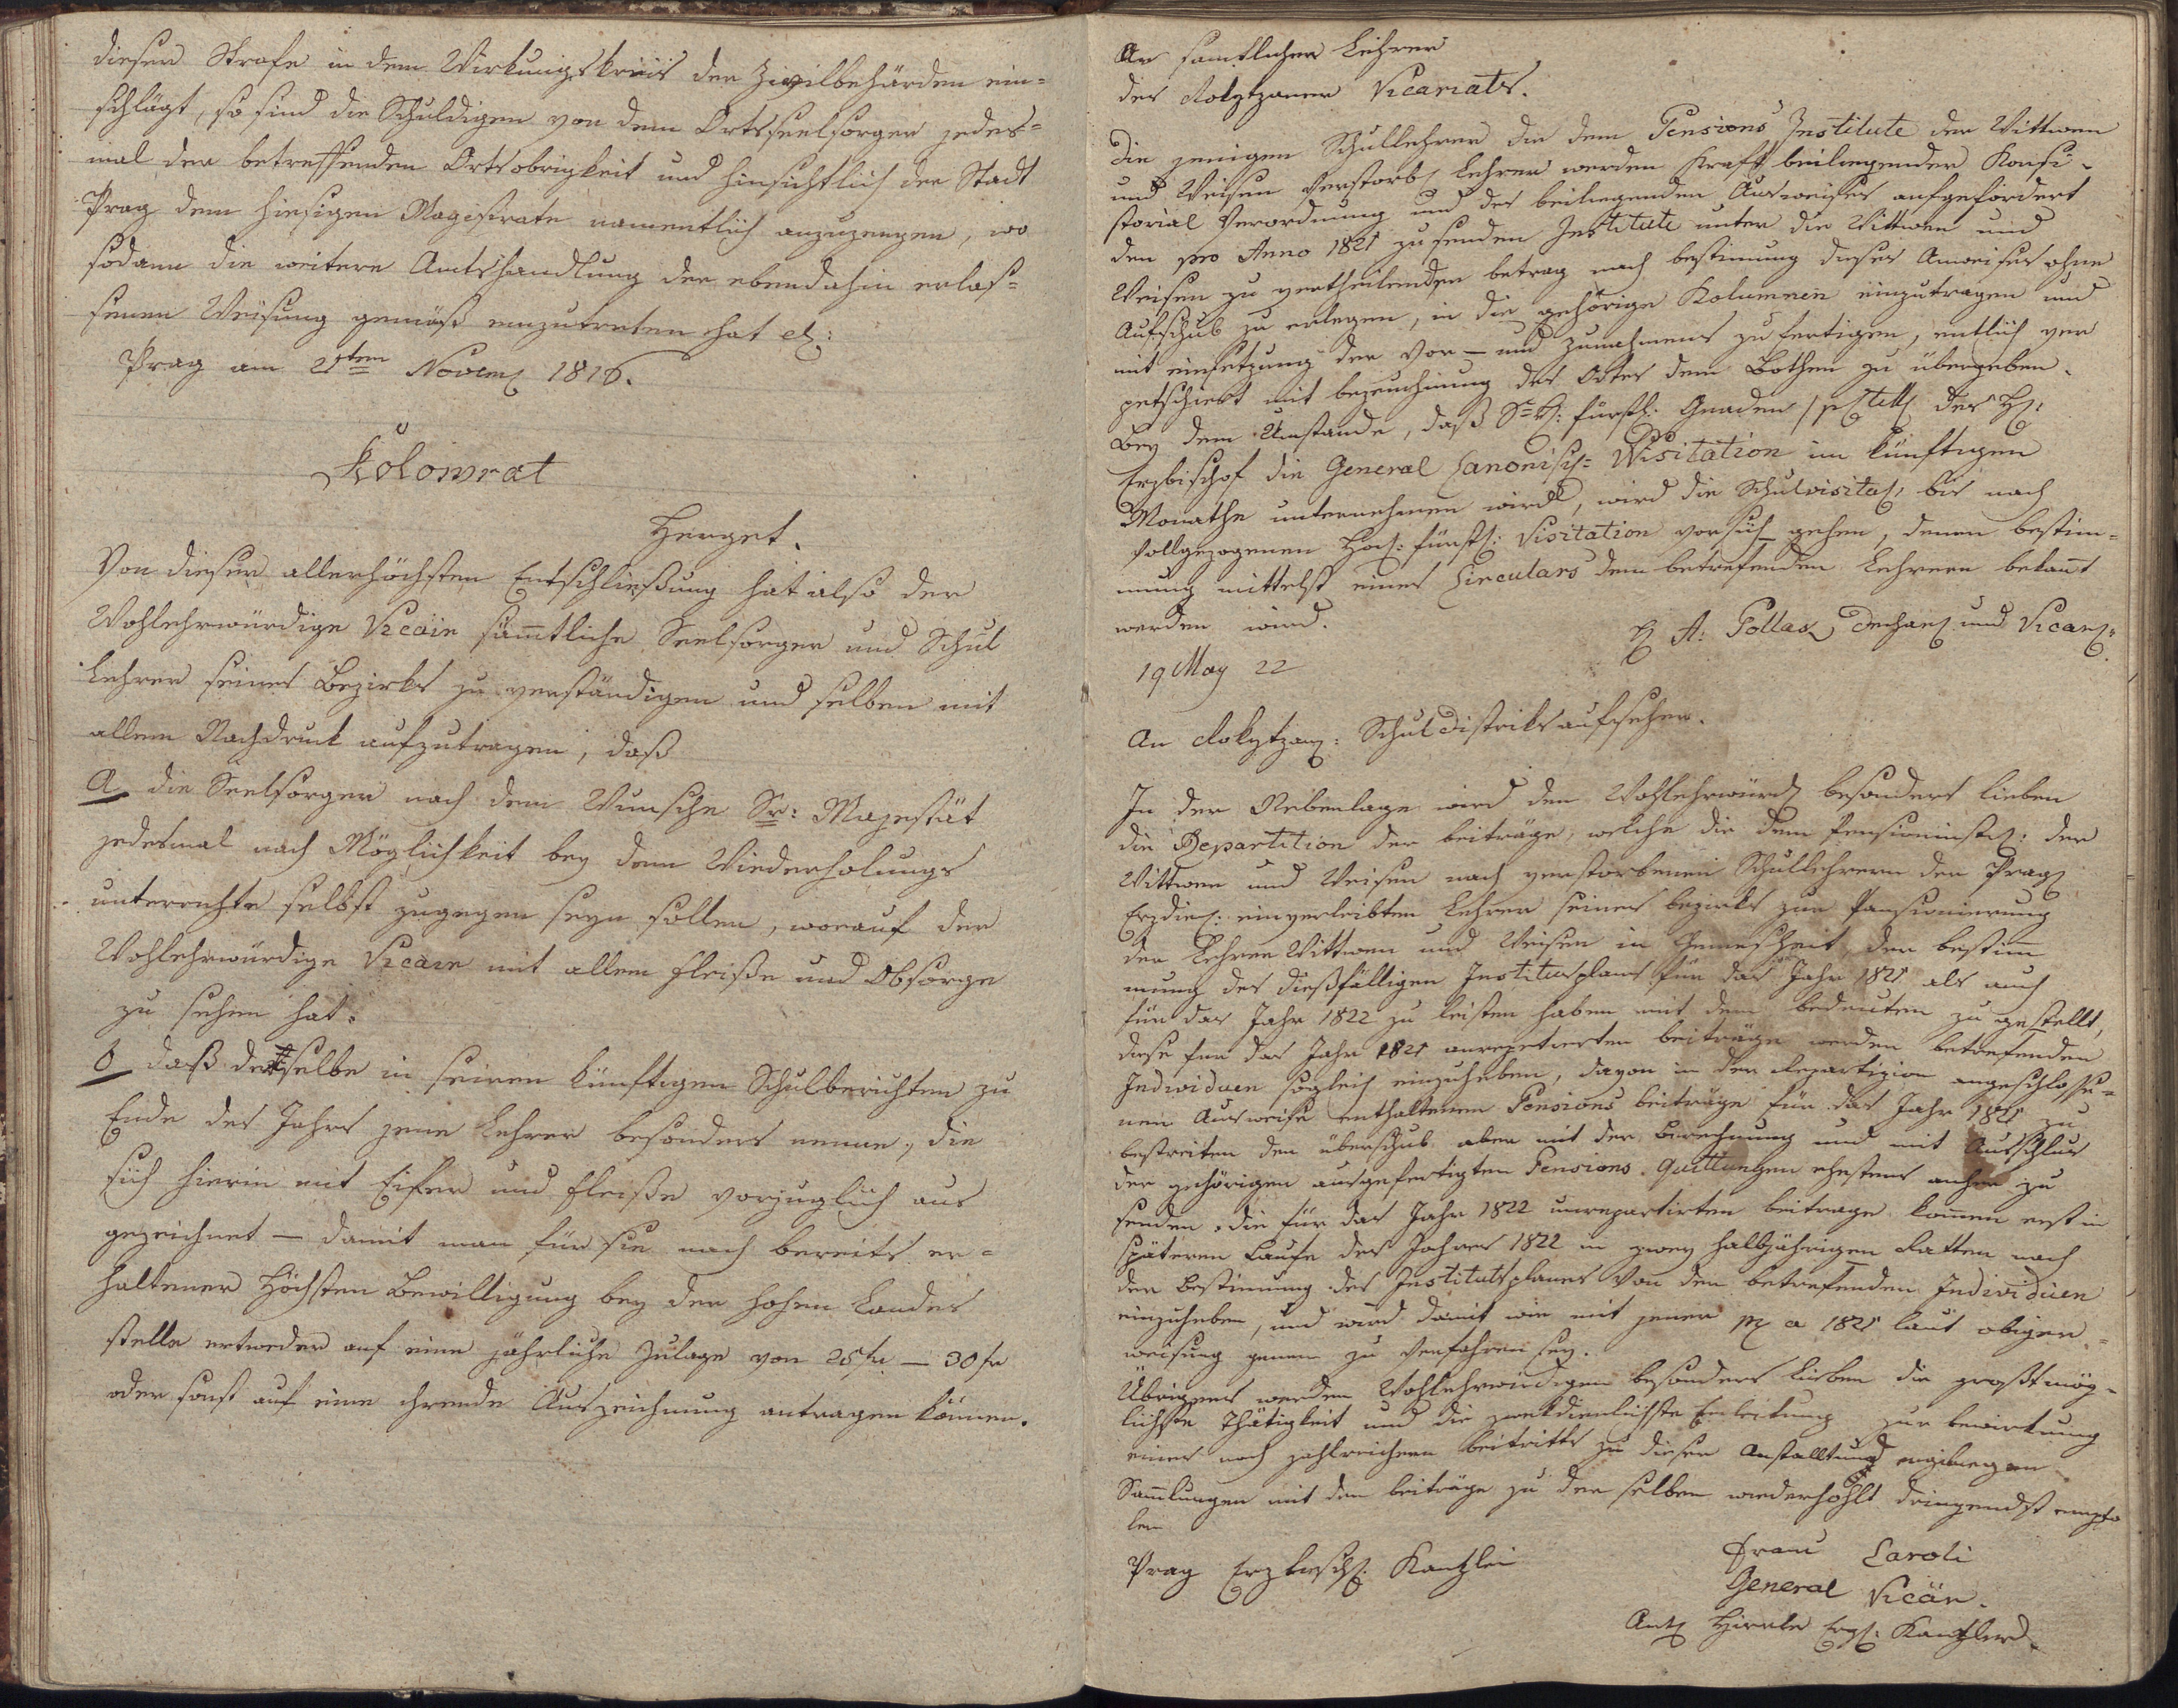 dieser Strafe in dem Wirkungskreis der Zivilbehörden ein=
schlägt, so sind die Schuldigen von dem Ortsseelsorger jedes=
mal der betreffenden Ortsobrigkeit und hinsichtlich der Stadt
Prag dem hiesigen Magistrate namentlich anzuzeugen, wo
sodann die weitere Amtshandlung der ebendahin erlas=
senen Weisung gemäß einzutreten hat
Prag am 21ten Novem 1816.
Kolowrat
Herget.
Von dieser allerhöchsten Entschließung hat also der
Wohlehrwürdige Vicär sämtliche Seelsorger und Schul
Lehrer seines Bezirks zu verständigen und selben mit
allem Nachdruck aufzutragen, daß
a die Seelsorger nach dem Wunsche Sr: Majestät
jedesmal nach Möglichkeit bey dem Wiederholungs
unterrichte selbst zugegen seyn sollen, worauf der
Wohlehrwürdige Vicär mit allem Fleiße und Obsorge
zu sehen hat.
b daß derselbe in seinen künftigen Schulberichten zu
Ende des Jahrs jene Lehrer besonders nenne, die
sich hierin mit Eifer und Fleiße vorzuglich aus
gezeichnet — damit man für sie nach bereits er=
haltener Höchsten Bewilligung bey der hohen Landes
stelle entweder auf eine jährliche Zulage von 25 fr — 30 fr
oder sonst auf eine ehrende Auszeichnung antragen könne.
An samtlicher Lehrer
des Rokytzaner Vicariats.
Die jenigen Schullehrer die dem Pensions Institute der Wittwen
und Weisen verstorb Lehrer werden Kraft beiliegender Konsi-
storial Verordnung und des beiliegenden Ausweises aufgefordert
den pro Anno 1821 zu senden Institute unter die Wittwen und
Weisen zu vertheilenden betrag nach bestimung dieses Anweises ohne
Aufschub zu erlegen, in die gehörige Kolumnen einzutragen und
mit einsetzung der Vor – und zunahmens zu fertigen, entlich ver
petschiert mit bezeuchnung des Ortes dem Bothen zu übergeben.
Bey dem Umstande, daß Se fürstl: Gnaden der H:
Erzbischof die General Canonisch= Visitation im künftigen
Monathe unternehmen wird, wird die Schulvisitat, bis nach
vollgezogenen Hoch: fürstl: Visitation vorsich gehen, denen bestim=
mung mittelst eines Circulars dem betrefenden Lehrern bekannt
werden wird.
A: Pollak Dechant und Vicar
19 May 22
An Rokytzan: Schuldistriktsaufseher.
In der Nebenlage wird dem Wohlehrwürd besonders lieben
die Repartition der beiträge, welche die dem Pensioninst: der
Wittwen und Weisen nach verstorbenen Schullehrern der Prag
Erzdic: einverleibten Lehrer seines bezirks zur Pansionierung
der Lehrer Wittwen und Weisen in Gemesheit der bestim
mung des dießfälligen Institutsplans für das Jahr 1821 als auch
für das Jahr 1822 zu leisten haben mit dem bedeuten zu gestellt,
diese für das Jahr 1821 beiträge werden betrefenden
Individuen sogleich einzuheben, davon in der Repartizion angeschlosse=
nen Ausweise enthaltenen Pensions beiträge für das Jahr 1821 zu
bestreiten den überschub aber mit der berechnung und mit Anschlus
der gehörigen ausgefertigten Pensions-Quittungen ehestens anher zu
senden. die für das Jahr 1822 beitrage komen erst in
späteren Laufe des Jahres 1822 in zwey halbjährigen Ratten nach
der bestimung des Institutsplanes von den betrefenden Individuen
einzuheben, und wird damit wie mit jener a 1821 laut obiger
weisung genau zu Verfahren sey.
Übrigens werden Wohlehrwürdigen besonders Lieben die großtmög-
lichste Thätigkeit und die zwekdienlichste Einleitung zur bewirkung
eines noch zahlreichern beitritts zu dieser Anstallt und
Samlungen mit den beiträge zu der selben wiederhohlt dringendst empfo
len
Prag Erzbisch: Kanzlei
Franz Caroli
General Vicär.
Ant Hirnle Erzs: Kanzler